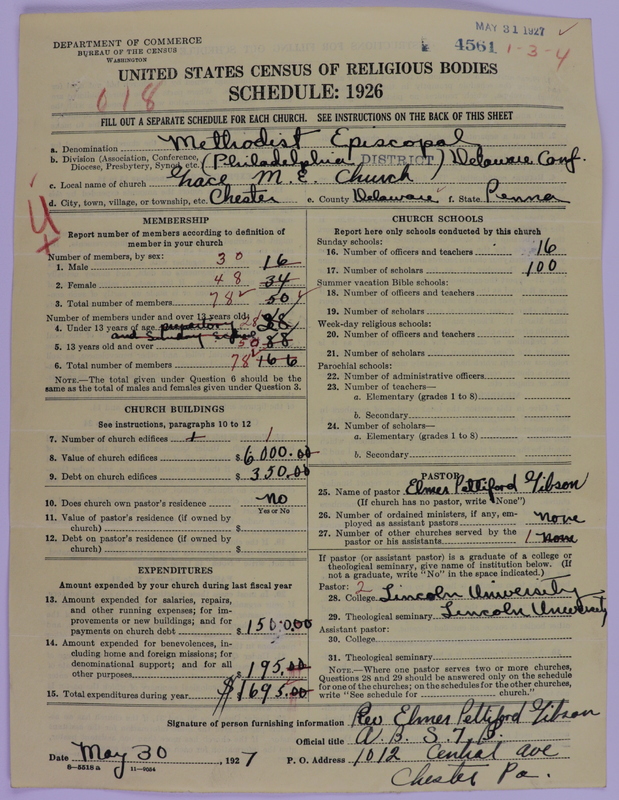 MAY 31 1927
4561 1-3-4
DEPARTMENT OF COMMERCE
BUREAU OF THE CENSUS
WASHINGTON
UNITED STATES CENSUS OF RELIGIOUS BODIES
018
SCHEDULE: 1926
FILL OUT A SEPARATE SCHEDULE FOR EACH CHURCH. SEE INSTRUCTIONS ON THE BACK OF THIS SHEET
a. Denomination Methodist Episcopal
b. Division (Association, Conference, Diocese, Presbytery, Synod, etc.) (Philadelphia DISTRICT) Delaware Conf.
c. Local name of church Grace M. E. Church
d. City, town, village, or township, etc. Chester e. County Delaware f. State Penna
MEMBERSHIP
Report number of members according to definition of
member in your church
Number of members, by sex:
1. Male 30 16
2. Female 48 34
3. Total number of members 78 50
Number of members under and over 13 years old:
4. Under 13 years of age preparatory 28 28
and Sunday School
5. 13 years old and over 50 88
6. Total number of members 78 166
NOTE.—The total given under Question 6 should be the
same as the total of males and females given under Question 3.
CHURCH BUILDINGS
See instructions, paragraphs 10 to 12
7. Number of church edifices 1
8. Value of church edifices $6000.00
9. Debt on church edifices $350.00
10. Does church own pastor's residence no
Yes or No
11. Value of pastor's residence (if owned by
church) $
12. Debt on pastor's residence (if owned by
church) $
EXPENDITURES
Amount expended by your church during last fiscal year
13. Amount expended for salaries, repairs,
and other running expenses; for im-
provements or new buildings; and for
payments on church debt $1500.00
14. Amount expended for benevolences, in-
cluding home and foreign missions; for
denominational support; and for all
other purposes $195.00
15. Total expenditures during year $1695.00
CHURCH SCHOOLS
Report here only schools conducted by this church
Sunday schools:
16. Number of officers and teachers 16
17. Number of scholars 100
Summer vacation Bible schools:
18. Number of officers and teachers
19. Number of scholars
Week-day religious schools:
20. Number of officers and teachers
21. Number of scholars
Parochial schools:
22. Number of administrative officers
23. Number of teachers—
a. Elementary (grades 1 to 8)
b. Secondary
24. Number of scholars—
a. Elementary (grades 1 to 8)
b. Secondary
PASTOR
25. Name of pastor Elmer Pettiford Gibson
(If church has no pastor, write "None")
26. Number of ordained ministers, if any, em-
ployed as assistant pastors none
27. Number of other churches served by the
pastor or his assistants 1 none
If pastor (or assistant pastor) is a graduate of a college or
theological seminary, give name of institution below. (If
not a graduate, write "No" in the space indicated.)
Pastor: 2
28. College Lincoln University
29. Theological seminary Lincoln University
Assistant pastor:
30. College
31. Theological seminary
NOTE.—Where one pastor serves two or more churches,
Questions 28 and 29 should be answered only on the schedule
for one of the churches; on the schedules for the other churches,
write "See schedule for church."
Signature of person furnishing information Rev Elmer Pettiford Gibson
Official title A. B. S. T. B.
Date May 30, 1927 P. O. Address 1012 Central ave
6—5518a 11—9054
Chester Pa.